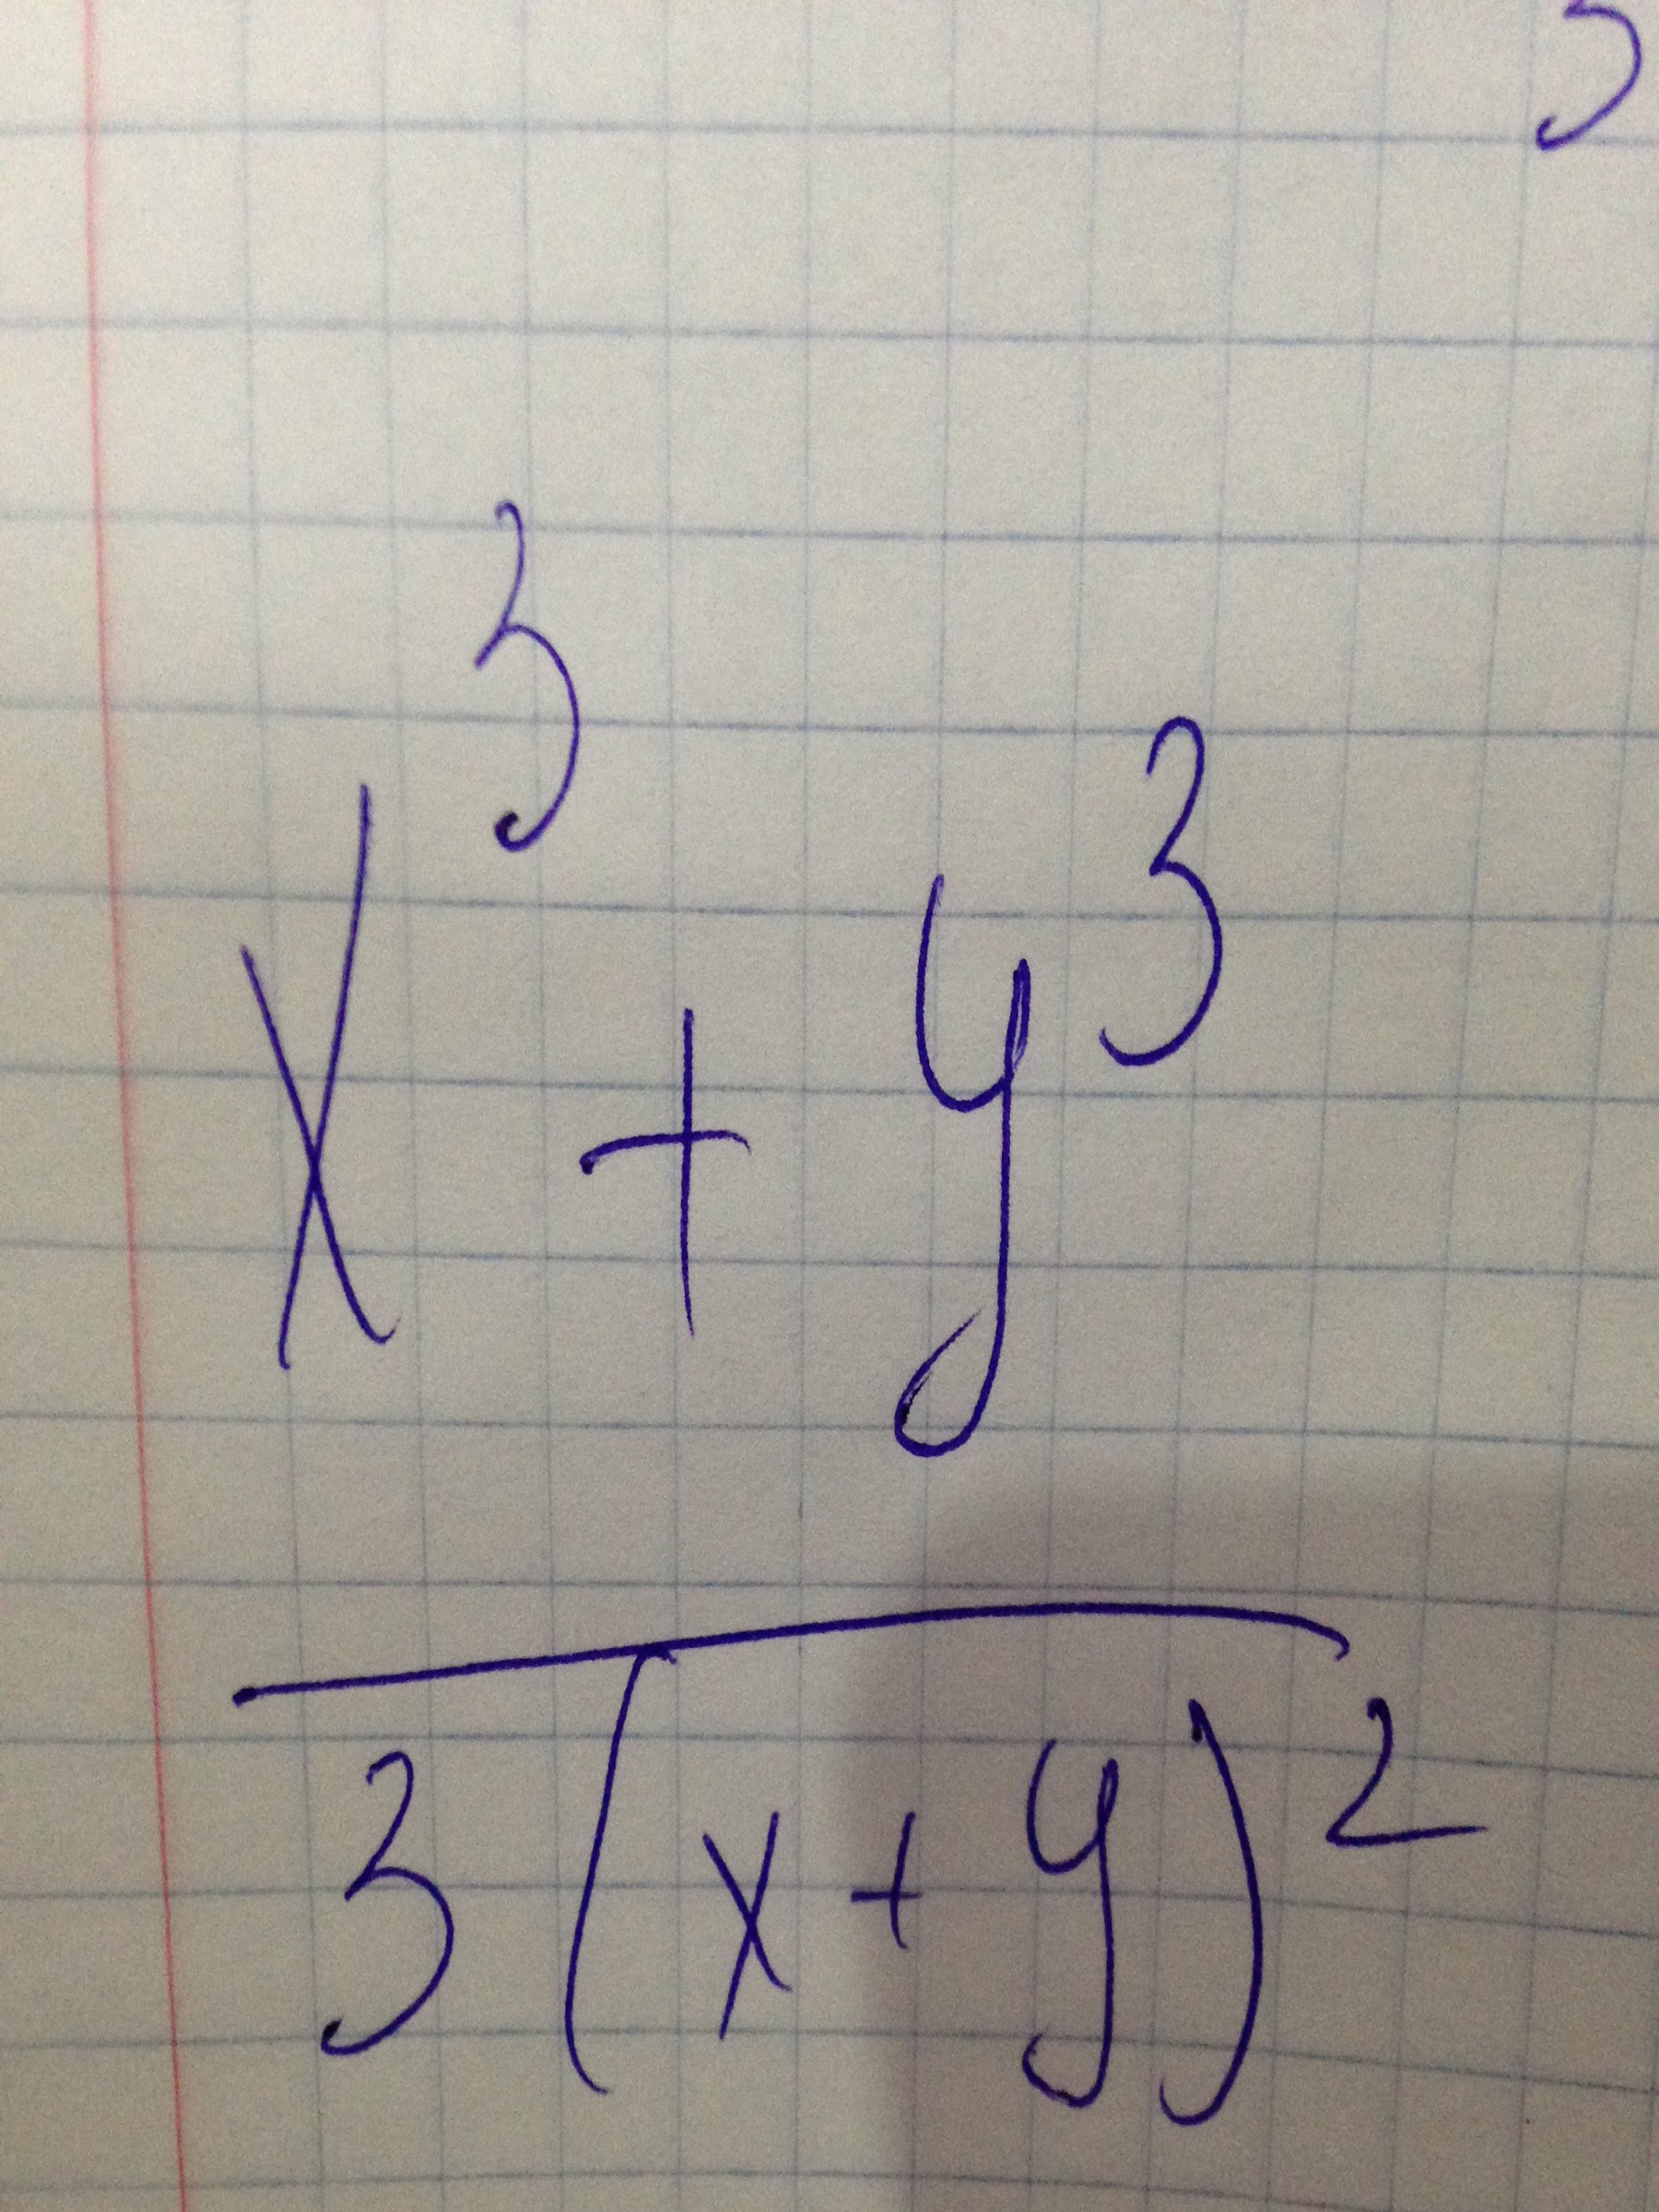 x³ + y³
3(x+y)²